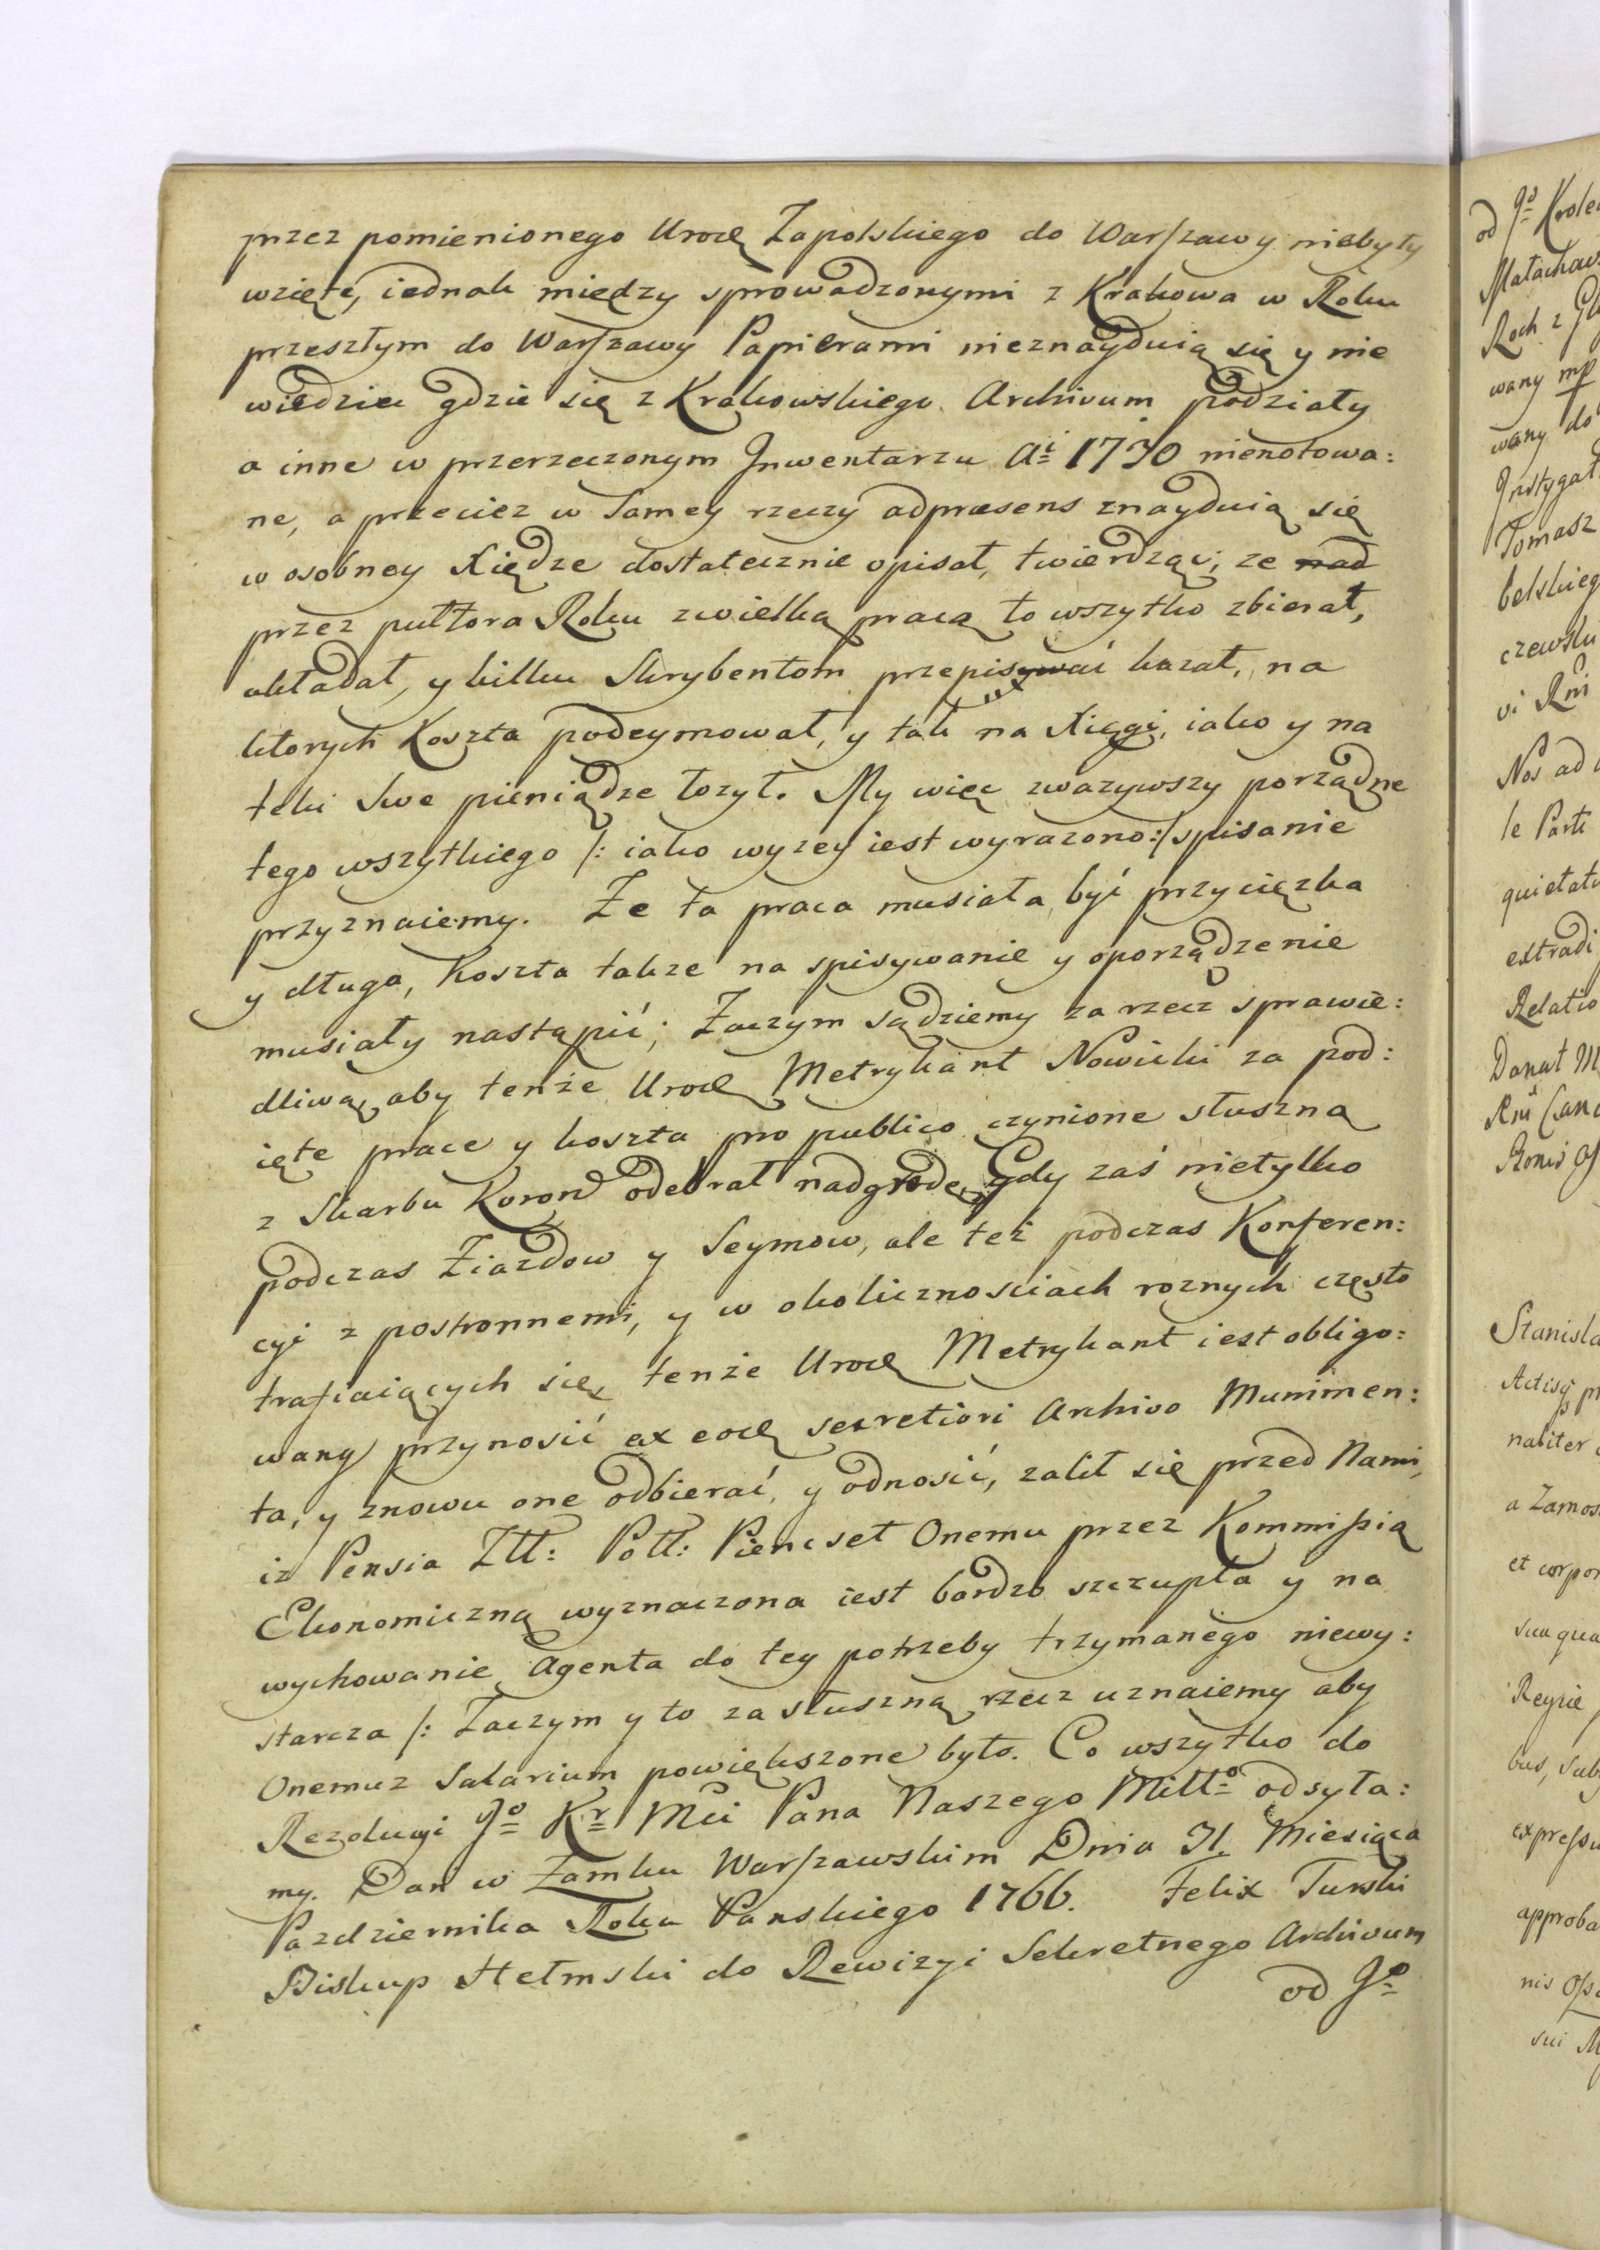 przez pomienionego Urodz Zapolskiego do Warszawy niebyły
wzięte, iednak między sprowadzonymi z Krakowa w Roku
przeszłym do Warszawy Papierami nieznayduią się y nie
wiedzieć gdzie się z Krakowskiego Archivum podziały
a inne w przerzeczonym Inwentarzu Ai 1730 nienotowa:
ne, a przeciez w Samey rzeczy adpraesens znayduią się
w osobney Xiędze dostatecznie opisał, twierdząc; ze nad
przez pułtora Roku zwielką pracą to wszytko zbierał,
układał, y kilku Skrybentom przepisywać kazał, na
ktorych Koszta podeymował, y tak na Xięgi, iako y na
teki Swe pieniądze łozył. My więc zwazywszy porządne
tego wszytkiego /: iako wyzey iest wyrazono:/ spisanie
przyznaiemy. Ze ta praca musiała być przycięzka
y długa, Koszta takze na spisywanie y oporządzenie
musiały nastąpić; Zaczym sądziemy za rzecz sprawie:
dliwą, aby tenże Urodz Metrykant Nowicki za pod:
ięte prace y koszta pro publico czynione słuszną
z Skarbu Koron odebrał nadgrodę, Gdy zaś nietylko
podczas Ziazdow y Seymow, ale też podczas Konferen:
cyi z postronnemi, y w okolicznosciach roznych często
trafiaiących się, tenże Urodz Metrykant iest obligo:
wany przynosić ex eodz secretiori Archivo Munimen:
ta, y znowu one odbierać, y odnosić, zalił się przed Nami,
iz Pensia Złł: Poll: Piencset Onemu przez Kommissią
Ekonomiczną wyznaczona iest bardzo szczupła y na
wychowanie Agenta do tey potrzeby trzymanego niewy:
starcza /: Zaczym y to za słuszną rzecz uznaiemy aby
Onemuz Salarium powiększone było. Co wszytko do
Rezolucyi Jo Kr Mci Pana Naszego Miłło odsyła:
my. Dan w Zamku Warszawskim Dnia Miesiąca
Pazdziernika Roku Panskiego 1766. Felix Turski
Biskup Hełmski do Rewizyi Sekretnego Archivum
od Jo
od Jo
Roch z
wany mp
wany do
Tomasz
vi Rni
Nos ad
le Parti
extradi
Relatio
Donat
a Zamos
et corpor
approba